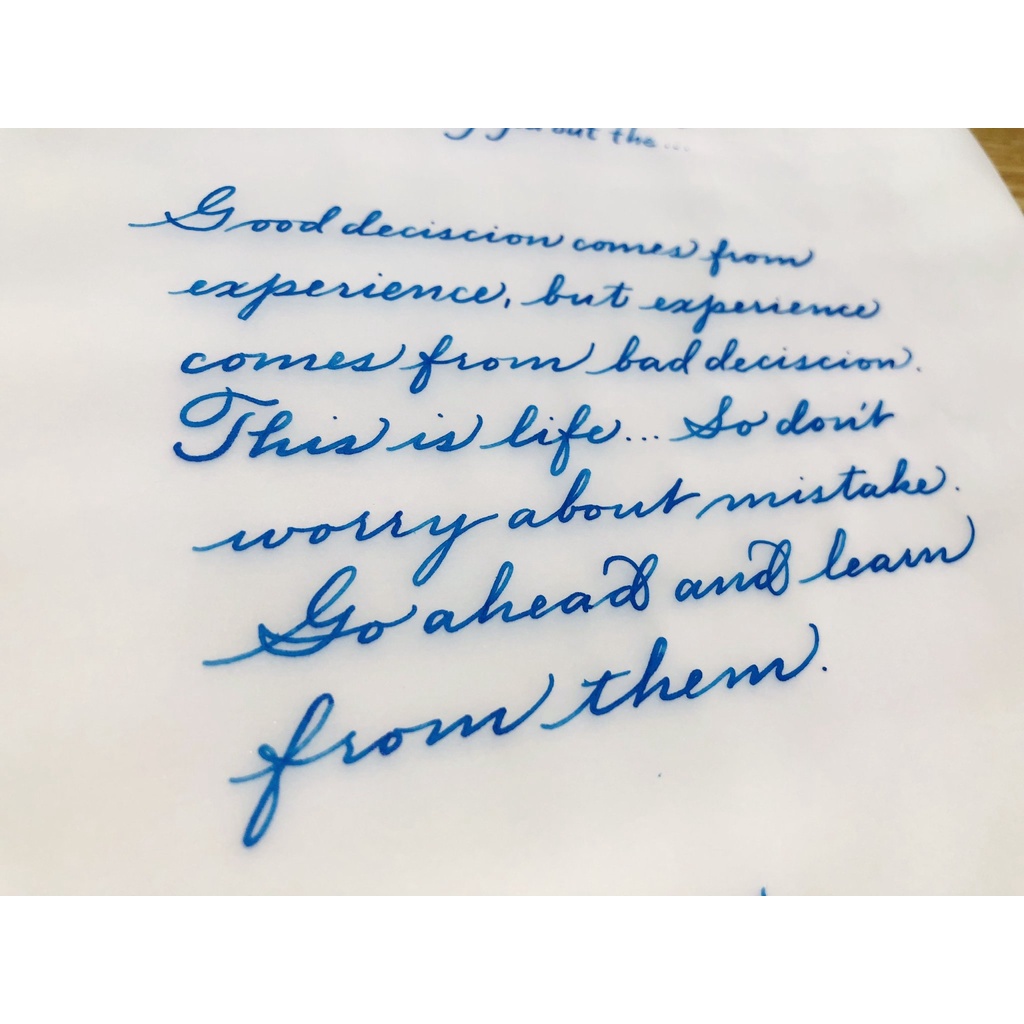 out the...
Good deciscion comes from
experience, but experience
comes from bad deciscion.
This is life... So don't
worry about mistake.
Go ahead and learn
from them.